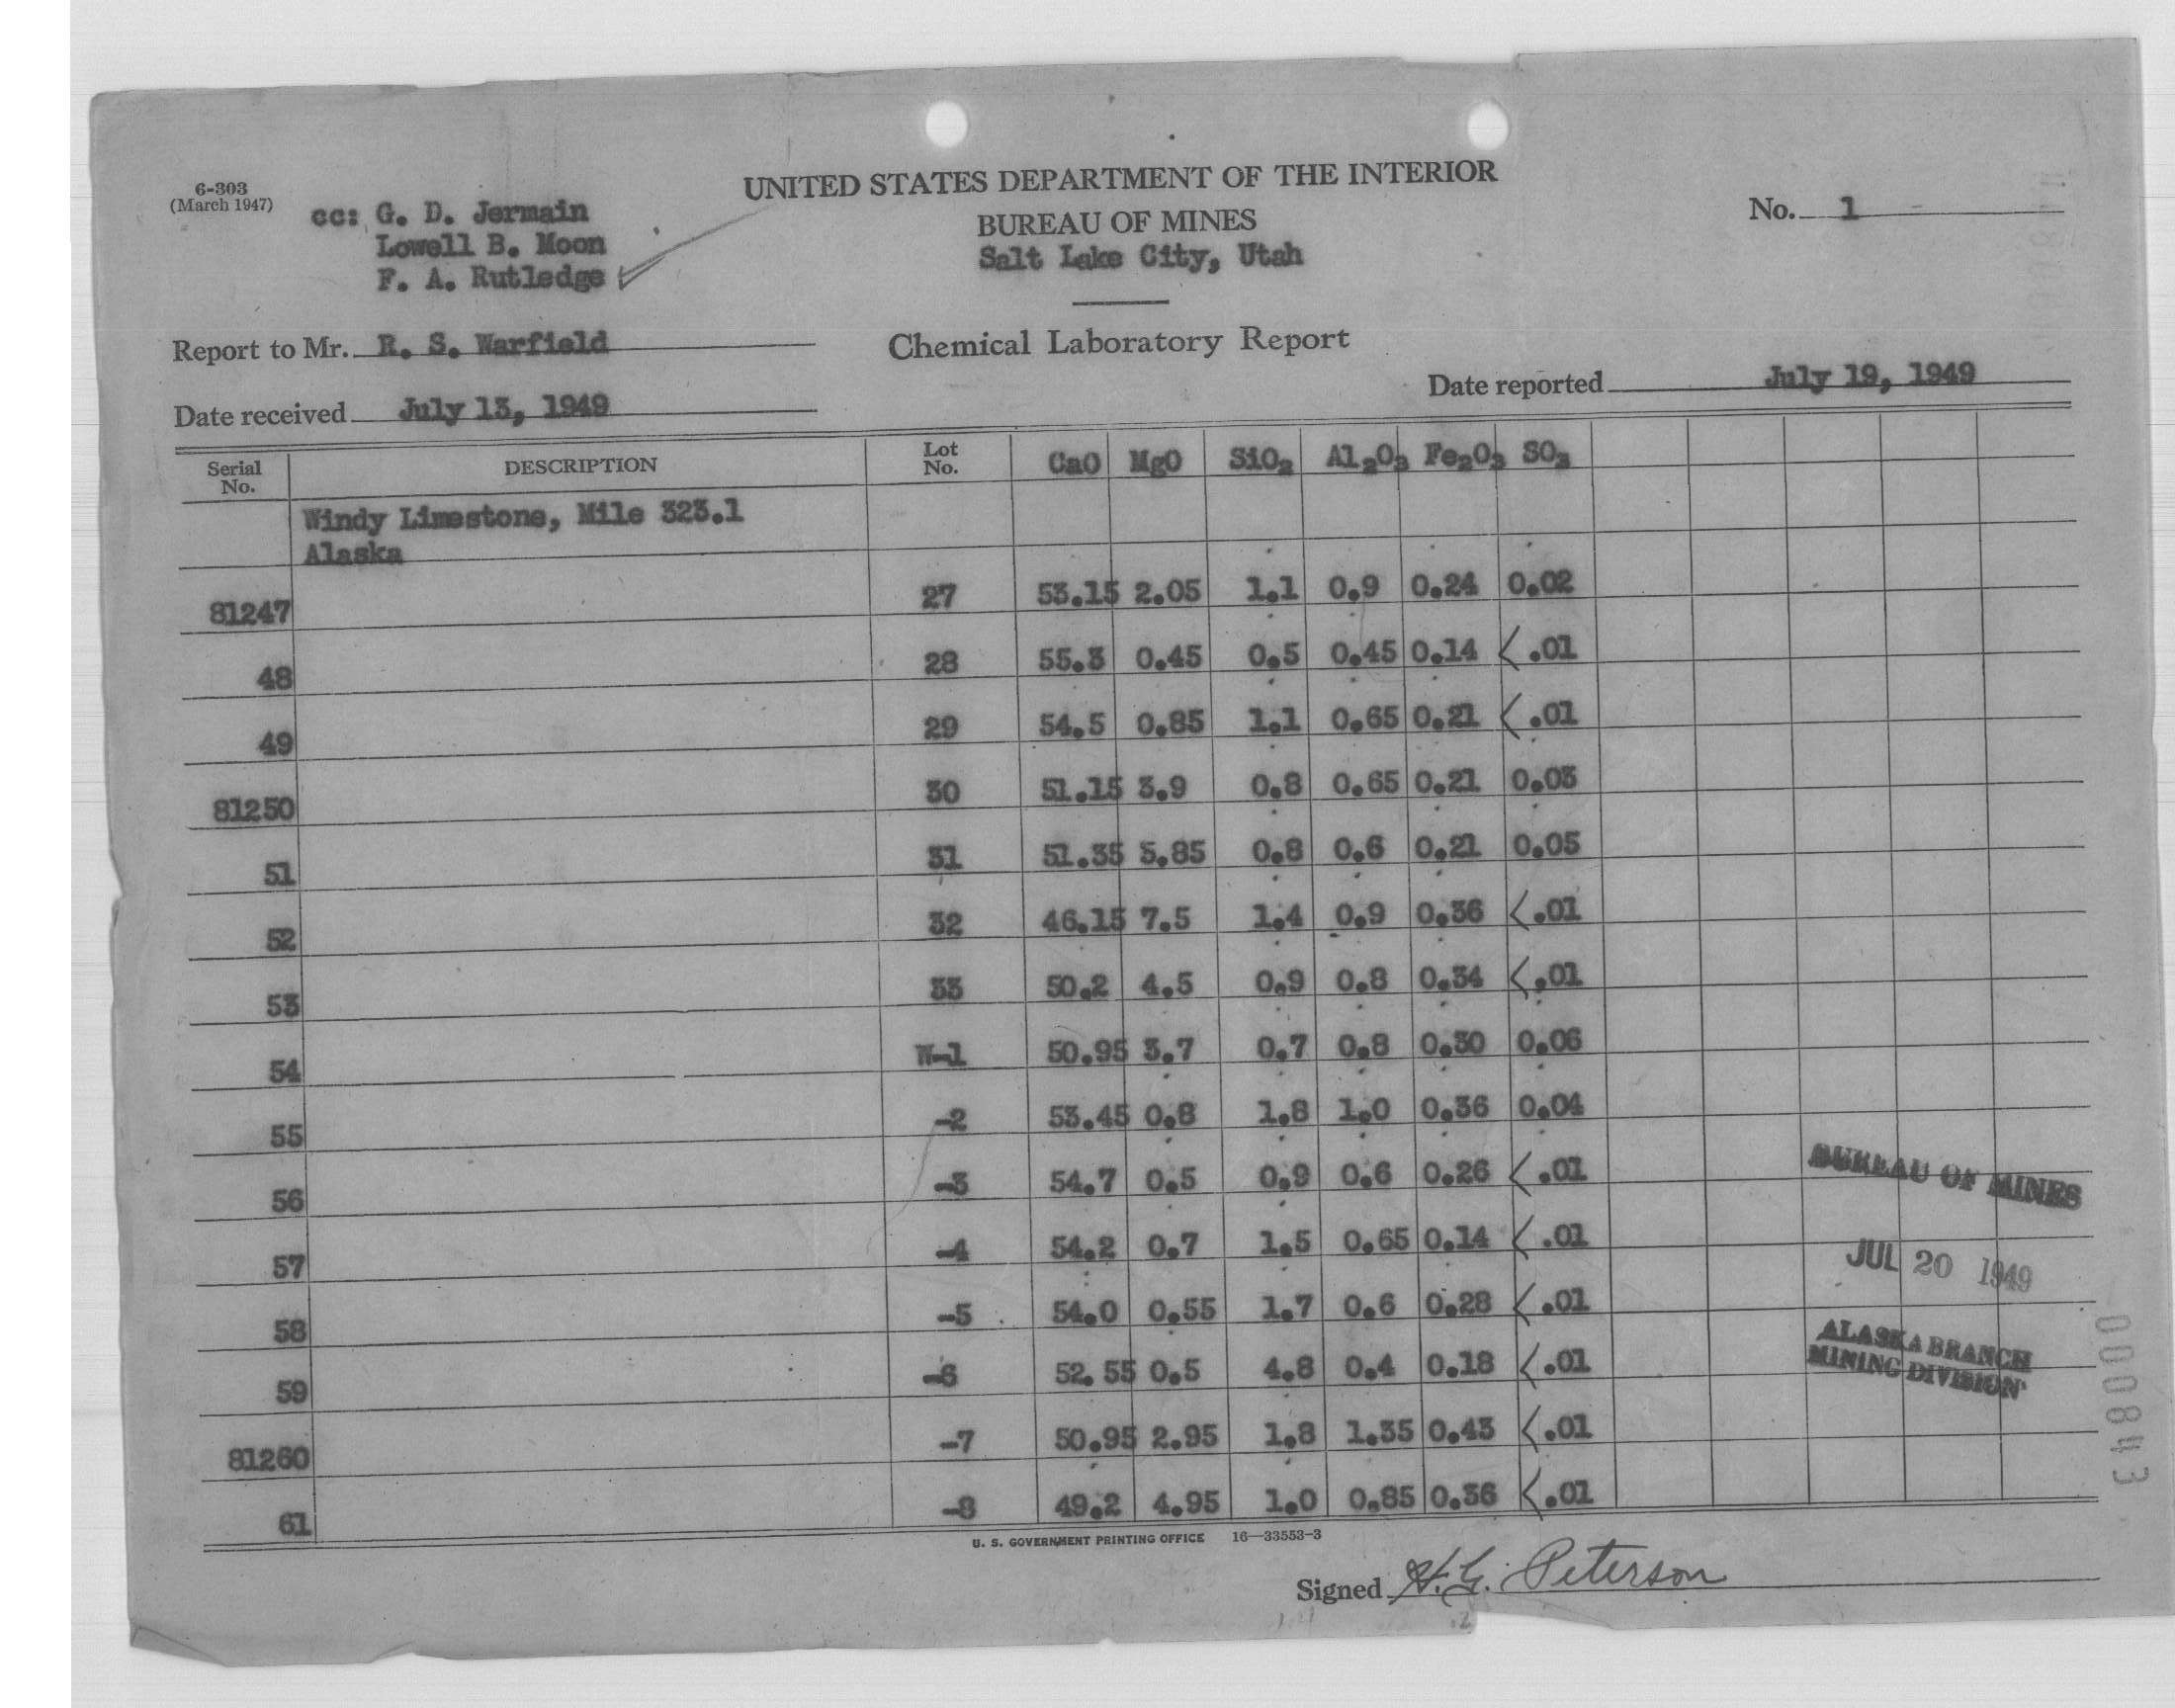 6-303
(March 1947)
cc: G. D. Jermain
Lowell B. Moon
F. A. Rutledge
UNITED STATES DEPARTMENT OF THE INTERIOR
BUREAU OF MINES
Salt Lake City, Utah
No. 1
Report to Mr. R. S. Warfield
Chemical Laboratory Report
Date received July 13, 1949
Date reported July 19, 1949
Serial No. DESCRIPTION Lot No. CaO MgO SiO2 Al2O3 Fe2O3 SO3
Windy Limestone, Mile 323.1
Alaska
81247 27 53.15 2.05 1.1 0.9 0.24 0.02
48 28 55.3 0.45 0.5 0.45 0.14 < .01
49 29 54.5 0.85 1.1 0.65 0.21 < .01
81250 30 51.15 3.9 0.8 0.65 0.21 0.03
51 31 51.35 3.85 0.8 0.6 0.21 0.05
52 32 46.15 7.5 1.4 0.9 0.36 < .01
53 33 50.2 4.5 0.9 0.8 0.34 < .01
54 W-1 50.95 3.7 0.7 0.8 0.30 0.06
55 -2 53.45 0.8 1.8 1.0 0.36 0.04
56 -3 54.7 0.5 0.9 0.6 0.26 < .01
57 -4 54.2 0.7 1.5 0.65 0.14 < .01
58 -5 54.0 0.55 1.7 0.6 0.28 < .01
59 -6 52.55 0.5 4.8 0.4 0.18 < .01
81260 -7 50.95 2.95 1.8 1.35 0.43 < .01
61 -8 49.2 4.95 1.0 0.85 0.36 < .01
BUREAU OF MINES
JUL 20 1949
ALASKA BRANCH
MINING DIVISION
000843
U. S. GOVERNMENT PRINTING OFFICE 16—33553-3
Signed H. G. Peterson